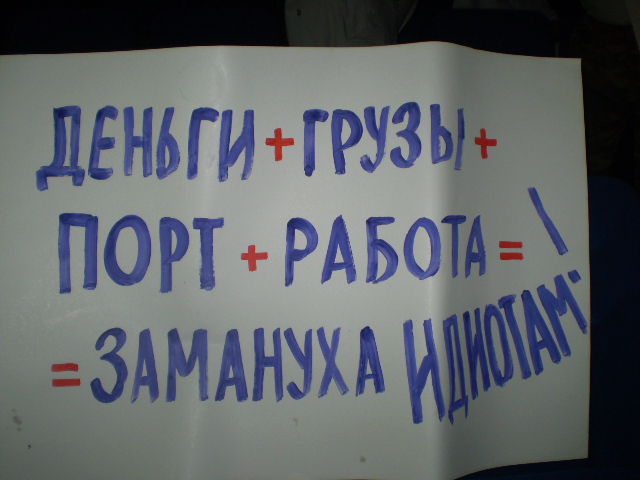 ДЕНЬГИ + ГРУЗЫ +
ПОРТ + РАБОТА =
= ЗАМАНУХА ИДИОТАМ!